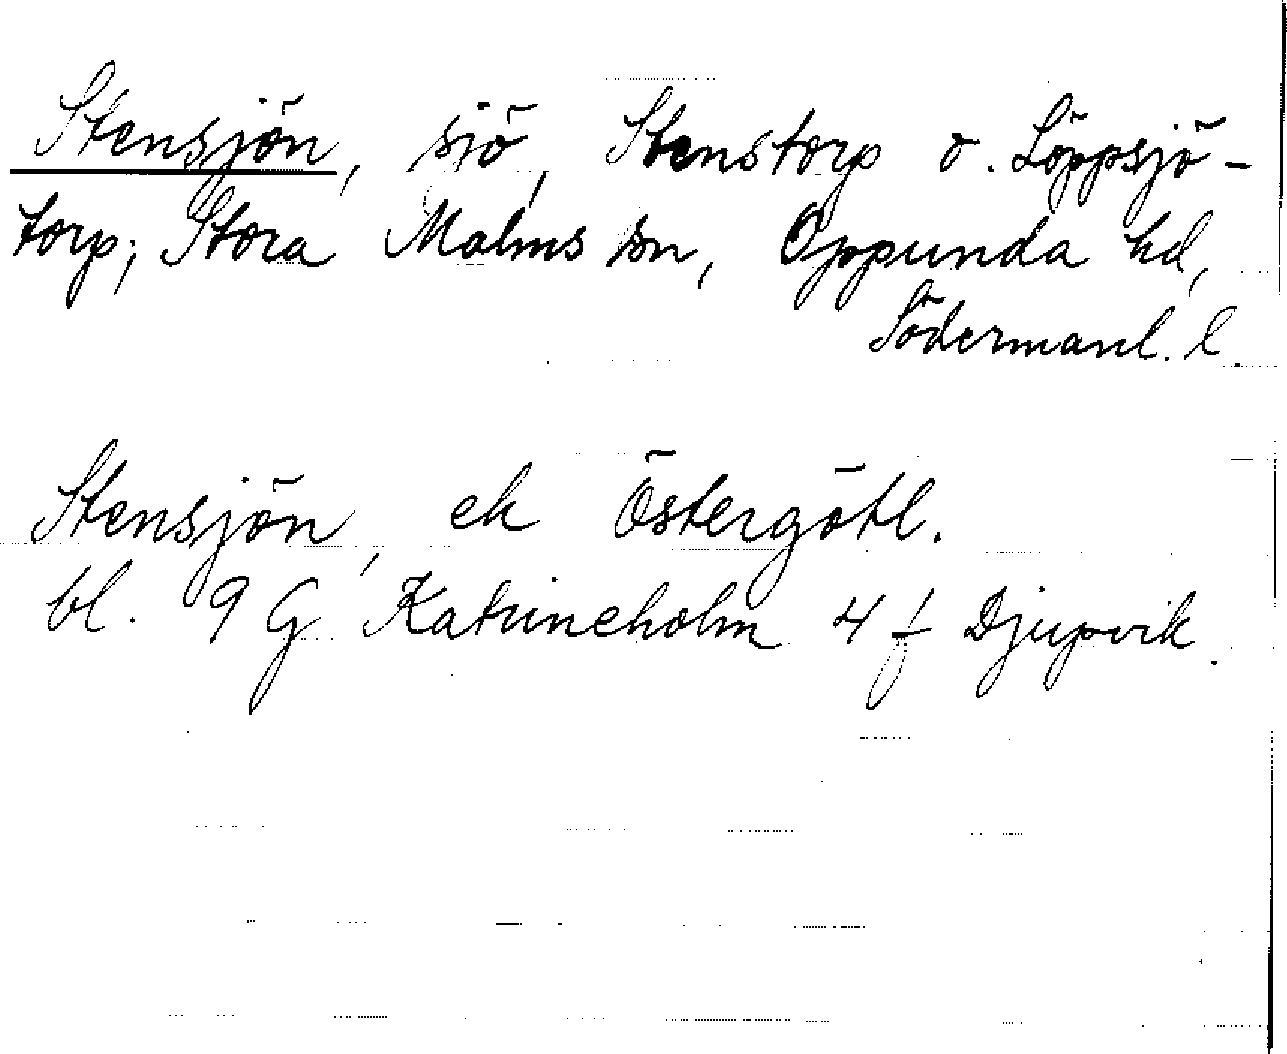 Stensjön, sjö, Stenstorp o. Löppsjö-
torp; Stora Malms sn, Oppunda hd,
Södermanl. l.
Stensjön, ek Östergötl.
bl. 9 G Katrineholm 4 f Djupvik.